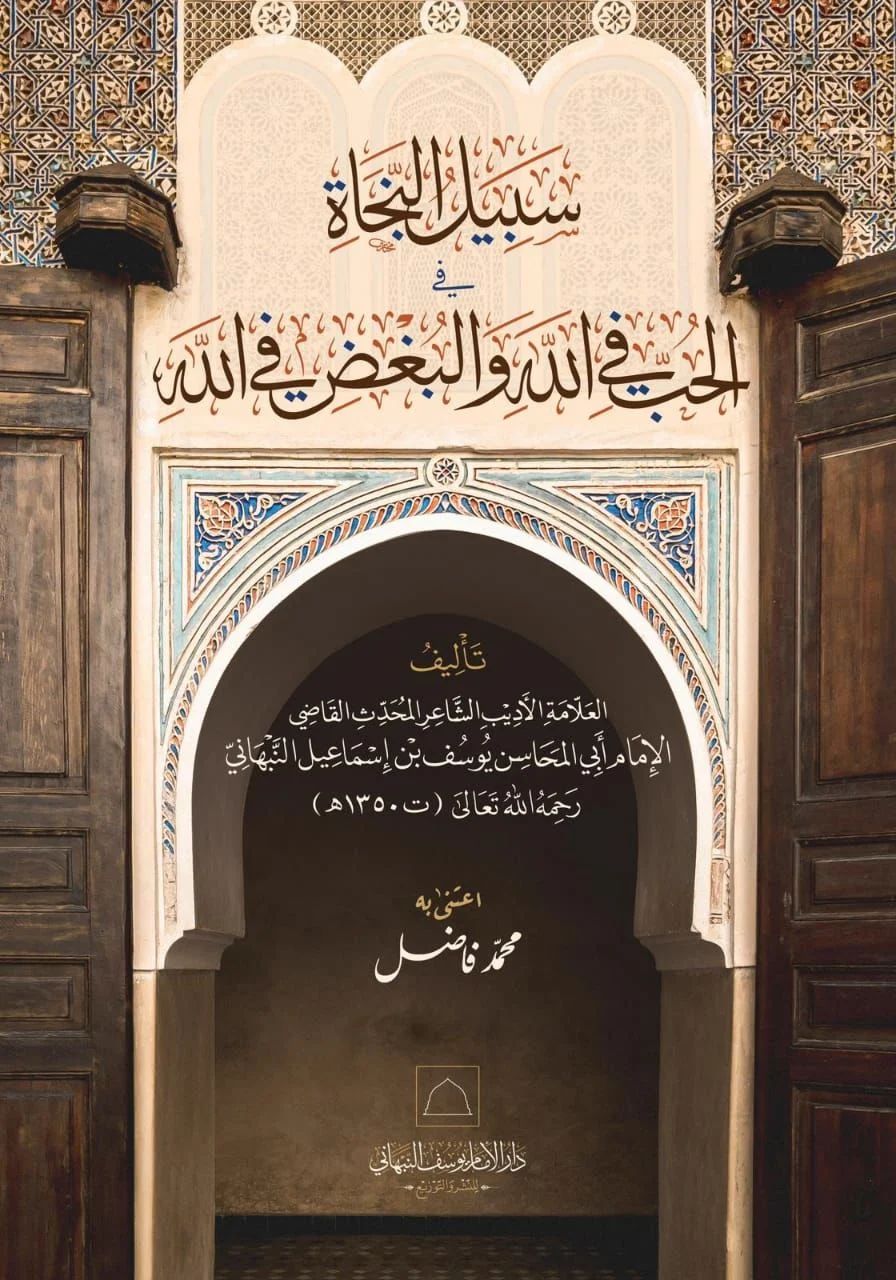 سَبِيلُ النَّجَاةِ
فِي
الحُبِّ فِي اللَّهِ وَالبُغْضِ فِي اللَّهِ
تَأْلِيفُ
العَلَّامَةِ الأَدِيْبِ الشَّاعِرِ المُحَدِّثِ القَاضِي
الإِمَامِ أَبِي المَحَاسِن يُوسُف بْن إِسْمَاعِيل النَّبْهَانِيّ
رَحِمَهُ اللهُ تَعَالَىٰ (ت ١٣٥٠هـ)
اعتنى به
محمّد فاضل
دَارُ الإِمَامِ يُوسُف النَّبْهَانِي
لِلنَّشْرِ وَالتَّوْزِيْعِ